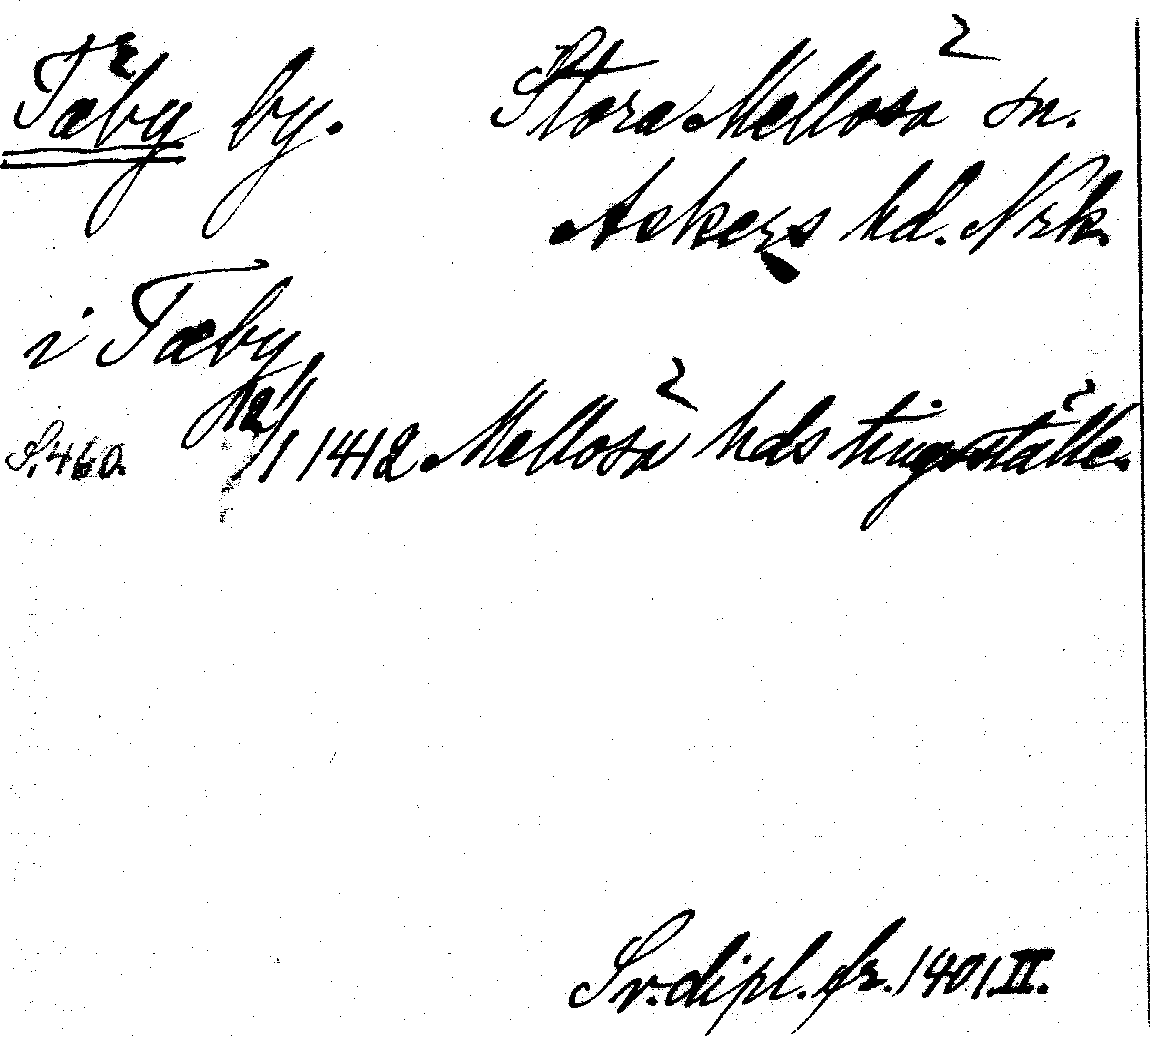 Täby by. Stora Mellösa sn.
Askers hd. Nrk.
i Tæby
S. 460. 12/1 1412. Mellösa hds tingställe.
Sv. dipl. fr. 1401. II.